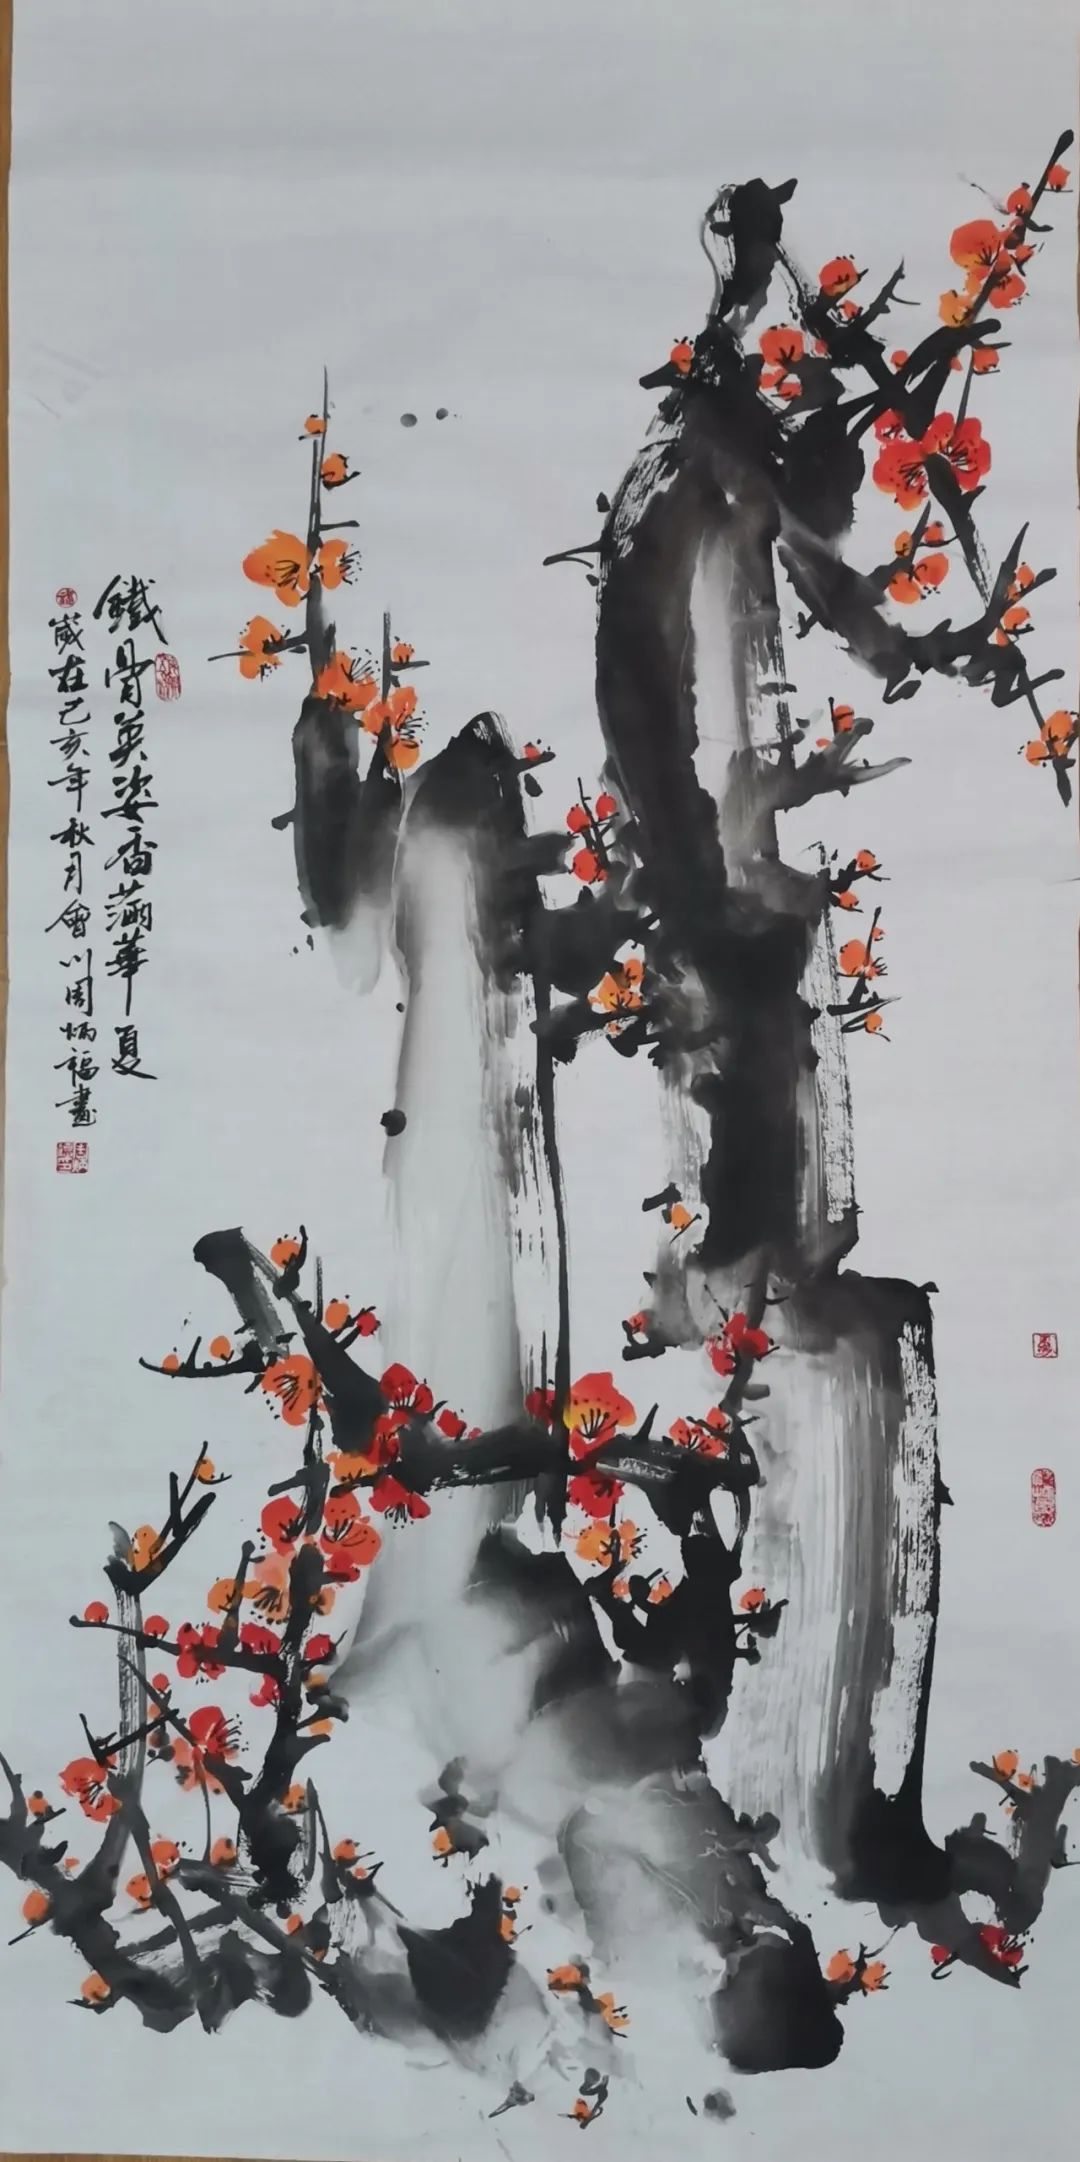 鐵骨英姿香滿華夏
歲在己亥年秋月會川周炳福畫